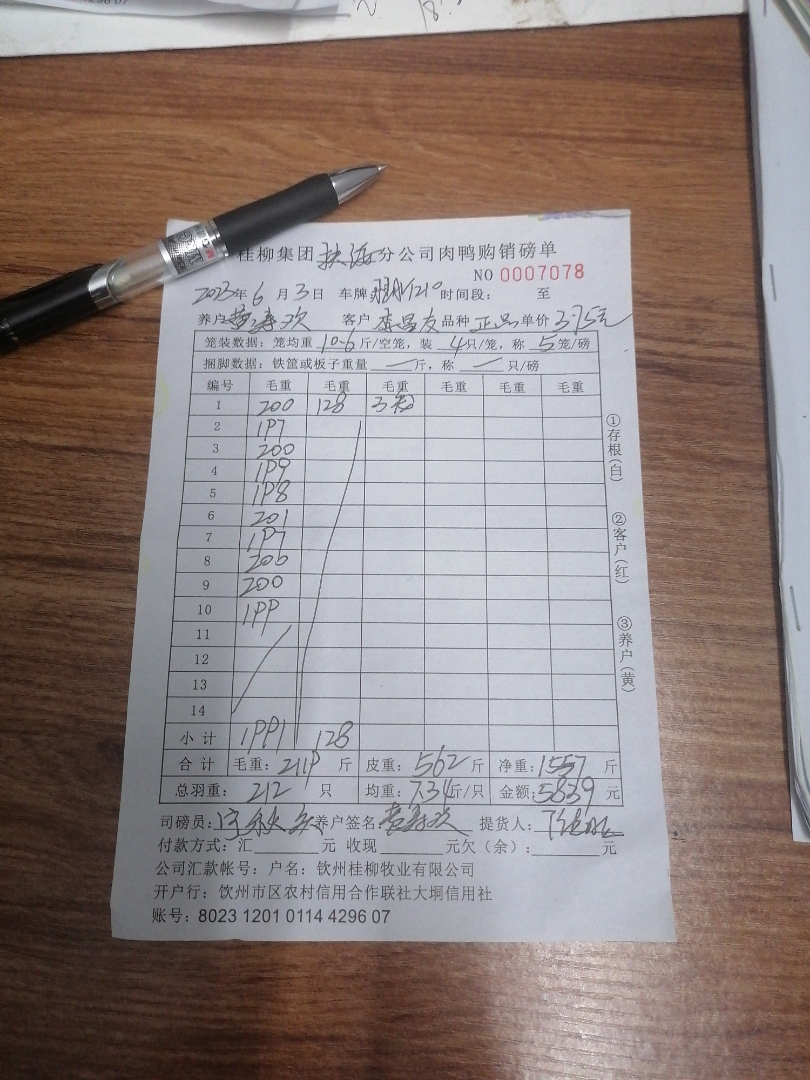 4296 07
桂柳集团扶海分公司肉鸭购销磅单
NO 0007078
2023年6月3日 车牌 1210 时间段： 至
养户 黄 欢 客户 李昌友 品种 正品 单价 3.75元
笼装数据：笼均重 10.6 斤/空笼，装 4 只/笼，称 5 笼/磅
捆脚数据：铁筐或板子重量 — 斤，称 — 只/磅
编号 毛重 毛重 毛重 毛重 毛重
1 200 128 3
2 197
3 200
4 199
5 198
6 201
7 197
8 200
9 200
10 199
11
12
13
14
小计 1991 128
合计 毛重：2119 斤 皮重：562 斤 净重：1557 斤
总羽重：212 只 均重：7.34 斤/只 金额：5839 元
司磅员： 养户签名： 提货人：
付款方式：汇 元 收现 元欠（余）： 元
公司汇款帐号：户名：钦州桂柳牧业有限公司
开户行：钦州市区农村信用合作联社大垌信用社
账号：8023 1201 0114 4296 07
①存根（白）
②客户（红）
③养户（黄）